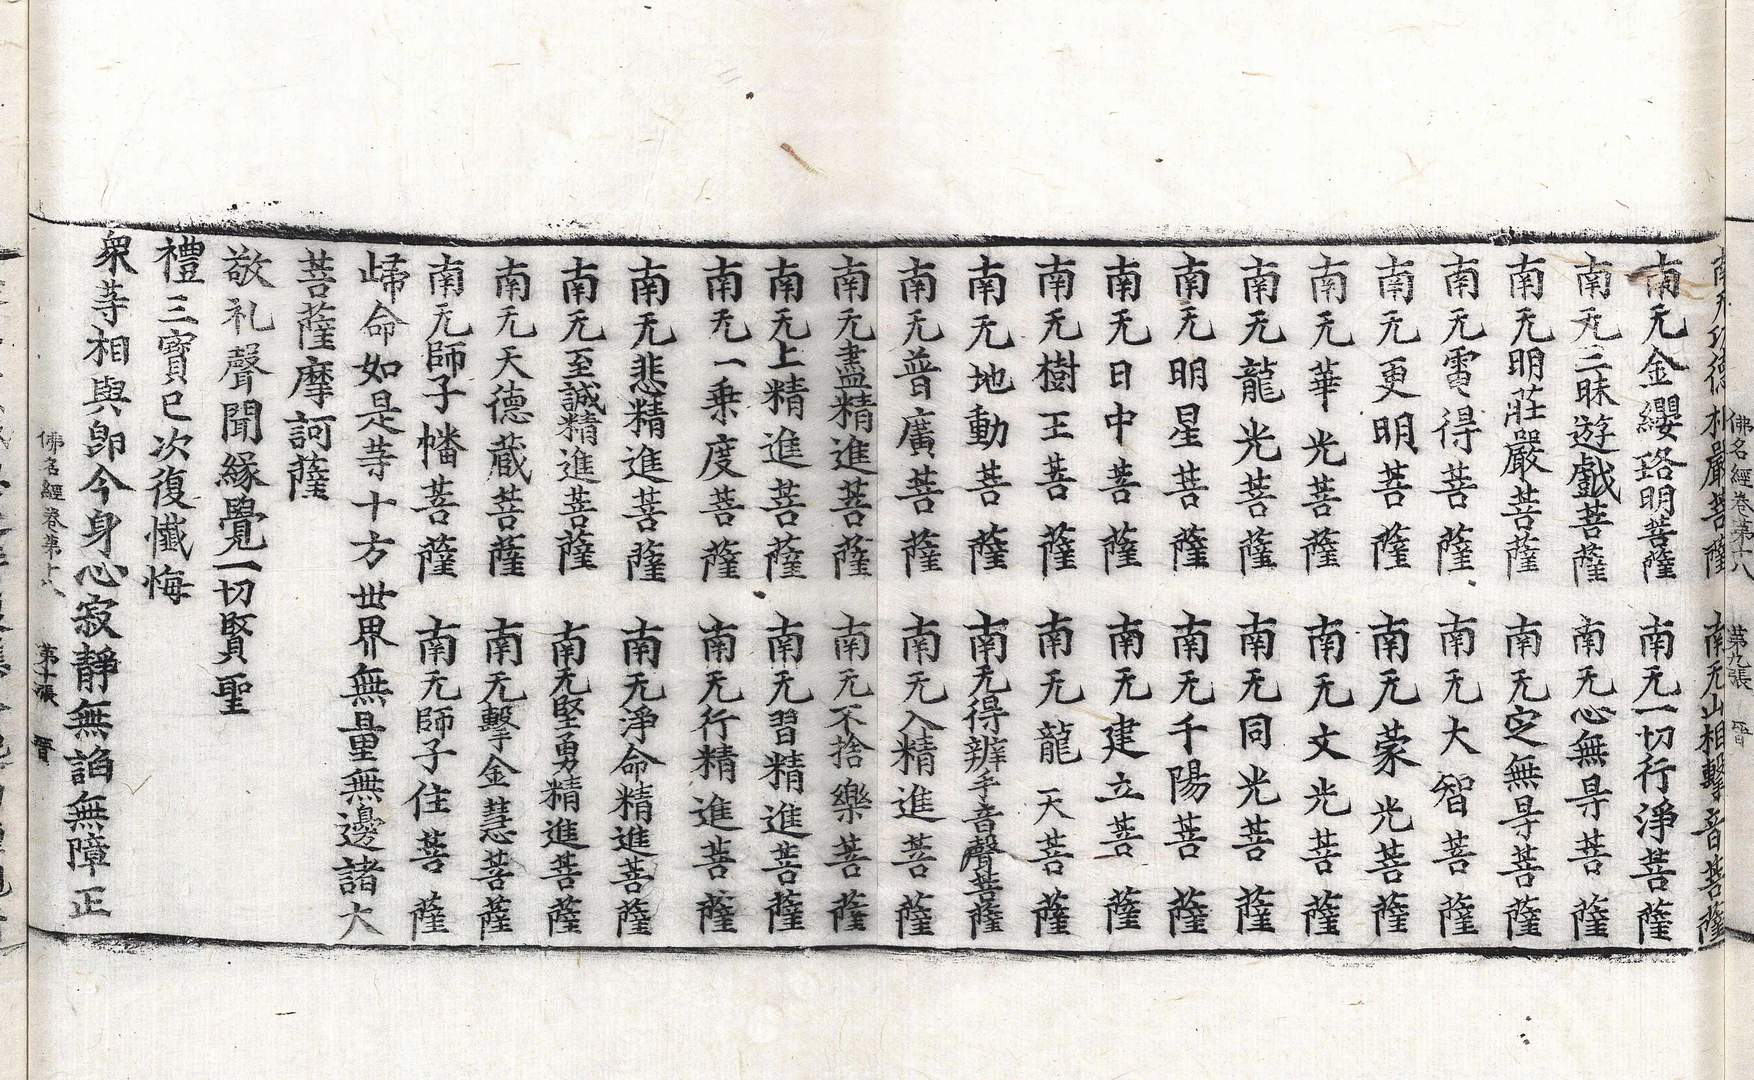 南无功德莊嚴菩薩　南无山相擊音菩薩
南无金纓珞明菩薩　南无一切行淨菩薩
南无三昧遊戲菩薩　南无心無㝵菩薩
南无明莊嚴菩薩　南无定無㝵菩薩
南无雷得菩薩　南无大智菩薩
南无更明菩薩　南无蒙光菩薩
南无華光菩薩　南无文光菩薩
南无龍光菩薩　南无同光菩薩
南无明星菩薩　南无千陽菩薩
南无日中菩薩　南无建立菩薩
南无樹王菩薩　南无龍天菩薩
南无地動菩薩　南无得辨手音聲菩薩
南无普廣菩薩　南无入精進菩薩
南无盡精進菩薩　南无不捨樂菩薩
南无上精進菩薩　南无習精進菩薩
南无一乗度菩薩　南无行精進菩薩
南无悲精進菩薩　南无淨命精進菩薩
南无至誠精進菩薩　南无堅勇精進菩薩
南无天德蔵菩薩　南无擊金慧菩薩
南无師子幡菩薩　南无師子住菩薩
歸命如是等十方世界無量無邊諸大
菩薩摩訶薩
敬礼聲聞緣覺一切賢聖
禮三寶已次復懺悔
衆等相與即今身心寂靜無諂無障正
佛名經卷第十八　第九張　晉
佛名經卷第十八　第十張　晉